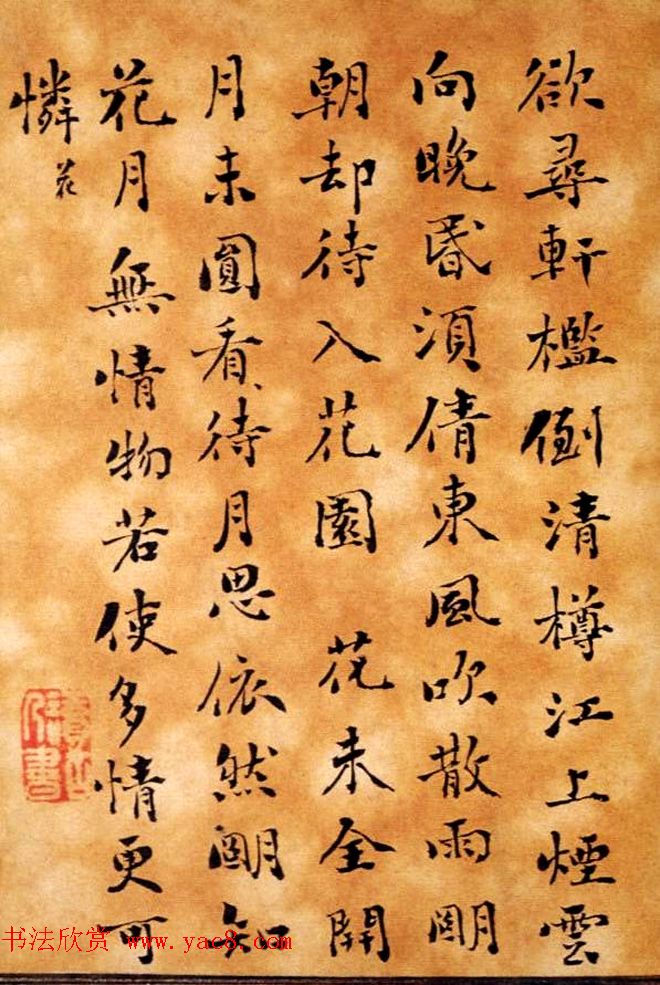 欲尋軒檻倒清樽江上煙雲
向晚昬須倩東風吹散雨明
朝却待入花園 花未全開
月未圓看待月思依然明知
花月無情物若使多情更可
憐 花
书法欣赏 www.yac8.com